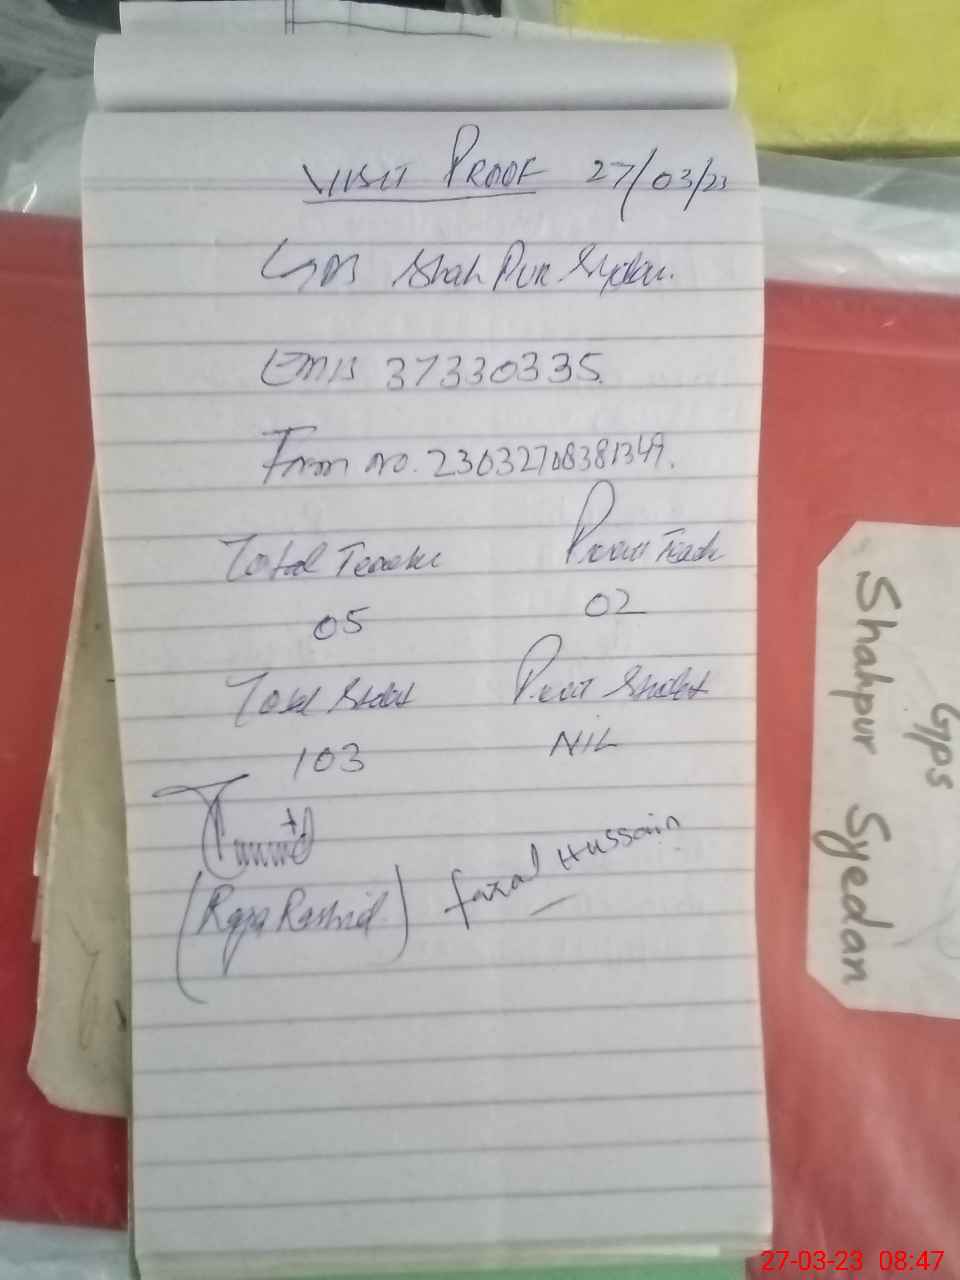 VISIT PROOF 27/03/23
GPS Shah Pur Syedan.
EMIS 37330335.
Form no. 23032708381349.
Total Teacher Present Teach
05 02
Total Stdnt Present Studet
103 NIL
(Raja Rashid) fazal Hussain
Gps
Shahpur Syedan
27-03-23 08:47